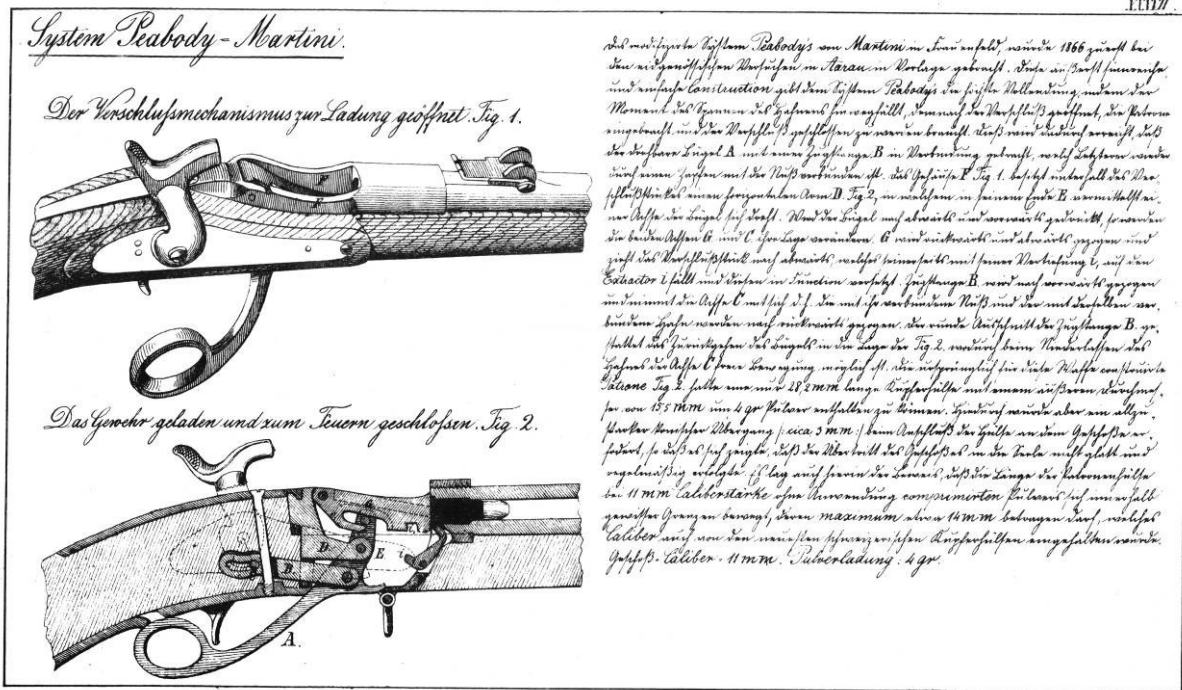 System Peabody-Martini.
Der Verschlußmechanismus zur Ladung geöffnet. Fig. 1.
F
E
Das Gewehr geladen und zum Feuern geschloßen. Fig 2.
G
D
E
i
B
A.
Das modifizirte System Peabodys von Martini in Frauenfeld, wurde 1866 zuerst bei
den eidgenößischen Versuchen in Aarau in Vorlage gebracht. Diese äußerst sinnreiche
und einfache Construction gibt dem System Peabodys die höchste Vollendung, indem der
Moment des Spannen des Hahnens hinwegfällt, demnach der Verschluß geöffnet, die Patrone
eingebracht und der Verschluß geschlossen zu werden braucht. Dieß wird dadurch erreicht, daß
der drehbare Bügel A mit einer Zugstange B in Verbindung gebracht, welch Letztere wieder
durch einen Zapfen mit der Nuß verbunden ist. Das Gehäuse F Fig 1. besitzt unterhalb des Ver-
schlußstückes einen horizontalen Arm D. Fig 2, in welchem in seinem Ende E vermittelst ei-
ner Achse der Bügel sich dreht. Wird der Bügel nach abwärts und vorwärts gedrückt, so werden
die beiden Achsen G und C, ihre Lage verändern. G wird rückwärts und abwärts gezogen und
zieht das Verschlußstück nach abwärts, welches seinerseits mit seiner Vertiefung auf den
Extractor i fällt und diesen in Function versetzt. Zugstange B. wird nach vorwärts gezogen
und nimmt die Achse C mit sich d.h. die mit ihr verbundene Nuß und der mit derselben ver-
bundene Hahn werden nach rückwärts gezogen. Der runde Ausschnitt der Zugstange B. ge-
stattet das Zurückgehen des Bügels in die Lage der Fig 2. wodurch beim Niederlassen des
Hahnes der Achse C freie Bewegung möglich ist. Die ursprünglich für diese Waffe construirte
Patrone Fig. 2. hatte eine nur 28,2 mm lange Kupferhülse mit einem äußeren Durchmes-
ser von 15,5 mm um 4 gr Pulver enthalten zu können. Hiedurch wurde aber ein allzu-
starker konischer Übergang (: cica 3 mm :) beim Anschluß der Hülse an dem Geschoße er-
fodert, so daß es sich zeigte, daß der Übertritt des Geschoßes in die Seele nicht glatt und
regelmäßig erfolgte. Es lag auch hierin der Beweis, daß die Länge der Patronenhülse
bei 11 mm Caliberstärke ohne Anwendung comprimirten Pulvers sich innerhalb
gewisser Grenzen bewegt, deren maximum etwa 14 mm betragen darf, welches
Caliber auch von den neuesten schweizerischen Kupferhülsen eingehalten wurde.
Geschoß-Caliber = 11 mm. Pulverladung : 4 gr.